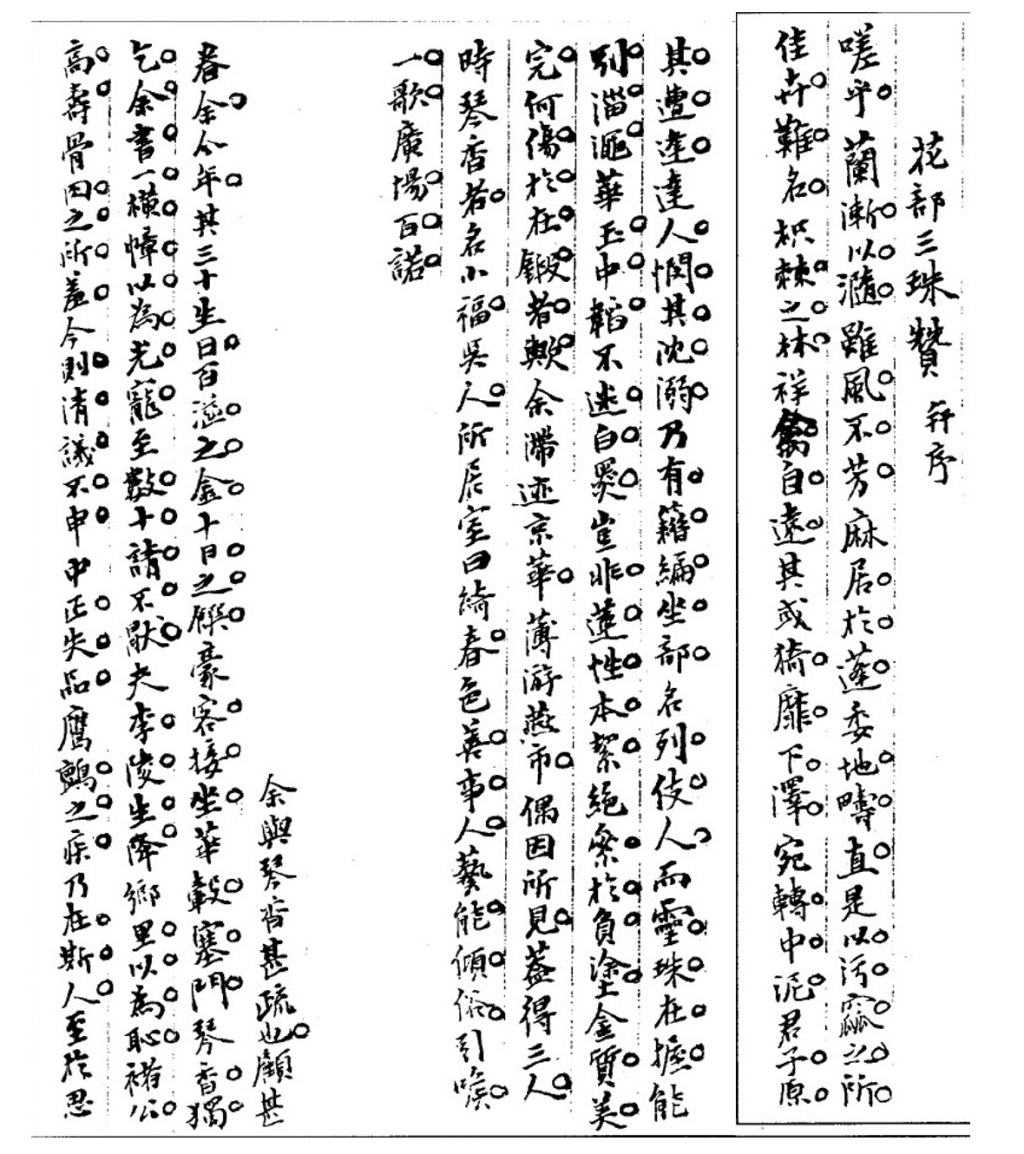 花部三珠贊 并序
嗟乎蘭漸以滫雖風不芳麻居於蓬委地疇直是以污窳之所
佳卉難名枳棘之林祥禽自遠其或猗靡下澤宛轉中泥君子原
其遭逢達人憫其沈溺乃有籍編坐部名列伎人而靈珠在握能
別淄澠華玉中韜不迷白黑豈非蓮性本絜絕緣於負塗金質美
完何傷於在鍛者歟余滯迹京華薄游燕市偶因所見蓋得三人
時琴香者名小福吳人所居室曰綺春色善事人藝能傾俗引喉
一歌廣場百諾
余與琴香甚疏也顧甚
眷余今年其三十生日百溢之金十日之饌豪客接坐華轂塞門琴香獨
乞余書一橫幛以為光寵至數十請不厭夫李陵生降鄉里以為恥褚公
高壽骨肉之所羞今則清議不申中正失品鷹鸇之疾乃在斯人至於忍